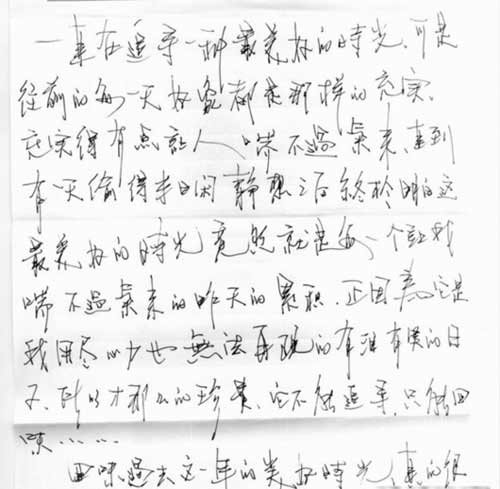 一直在追寻一种最美好的時光、可是
從前的每一天好象都是那样的充实、
充实得有点讓人喘不過氣来、直到
有一天偷得半日闲静想之后終於明白这
最美好的時光竟然就是每一个讓我
喘不過氣来的昨天的累积.正因為它是
我用尽心力也無法再现的有淚有笑的日
子、所以才那么的珍貴、它不能追寻、只能回
味……
回味過去这一年的美好時光、真的很